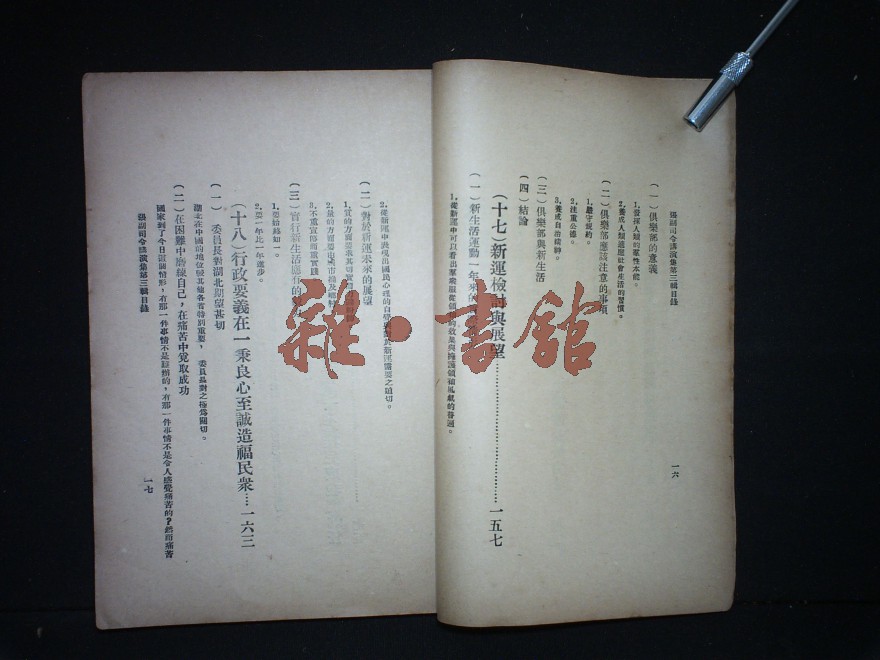 張副司令講演集第三輯目錄
一六
（一）俱樂部的意義
1.發揮人類的羣性本能。
2.養成人類適應社會生活的習慣。
（二）俱樂部應該注意的事項
1.嚴守規約。
2.注重公德。
3.養成自治精神。
（三）俱樂部與新生活
（四）結論
（十七）新運檢討與展望……一五七
（一）新生活運動一年來的
1.從新運中可以看出羣衆服從領袖的效果與擁護領袖風氣的普遍。
2.從新運中表現出國民心理的自覺與對於新運需要之迫切。
（二）對於新運未來的展望
1.質的方面要求其切實
2.量的方面要由城市推及鄉村
3.不重宣傳而重實踐
（三）實行新生活應有的
1.要始終如一。
2.要一年比一年進步。
（十八）行政要義在一秉良心至誠造福民衆……一六三
（一）委員長對湖北期望甚切
湖北在中國的地位較其他各省特別重要，委員長對之極爲關切。
（二）在困難中磨練自己，在痛苦中覓取成功
國家到了今日這個情形，有那一件事情不是難辦的，有那一件事情不是令人感覺痛苦的？然而痛苦
張副司令講演集第三輯目錄
一七
雜·書館